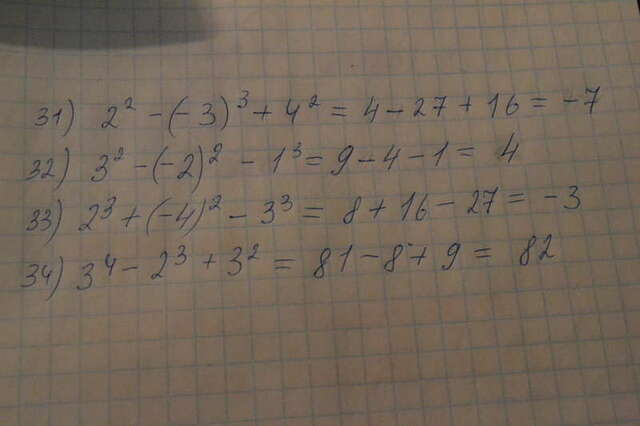 31) 2² - (-3)³ + 4² = 4 - 27 + 16 = -7
32) 3² - (-2)² - 1³ = 9 - 4 - 1 = 4
33) 2³ + (-4)² - 3³ = 8 + 16 - 27 = -3
34) 3⁴ - 2³ + 3² = 81 - 8 + 9 = 82